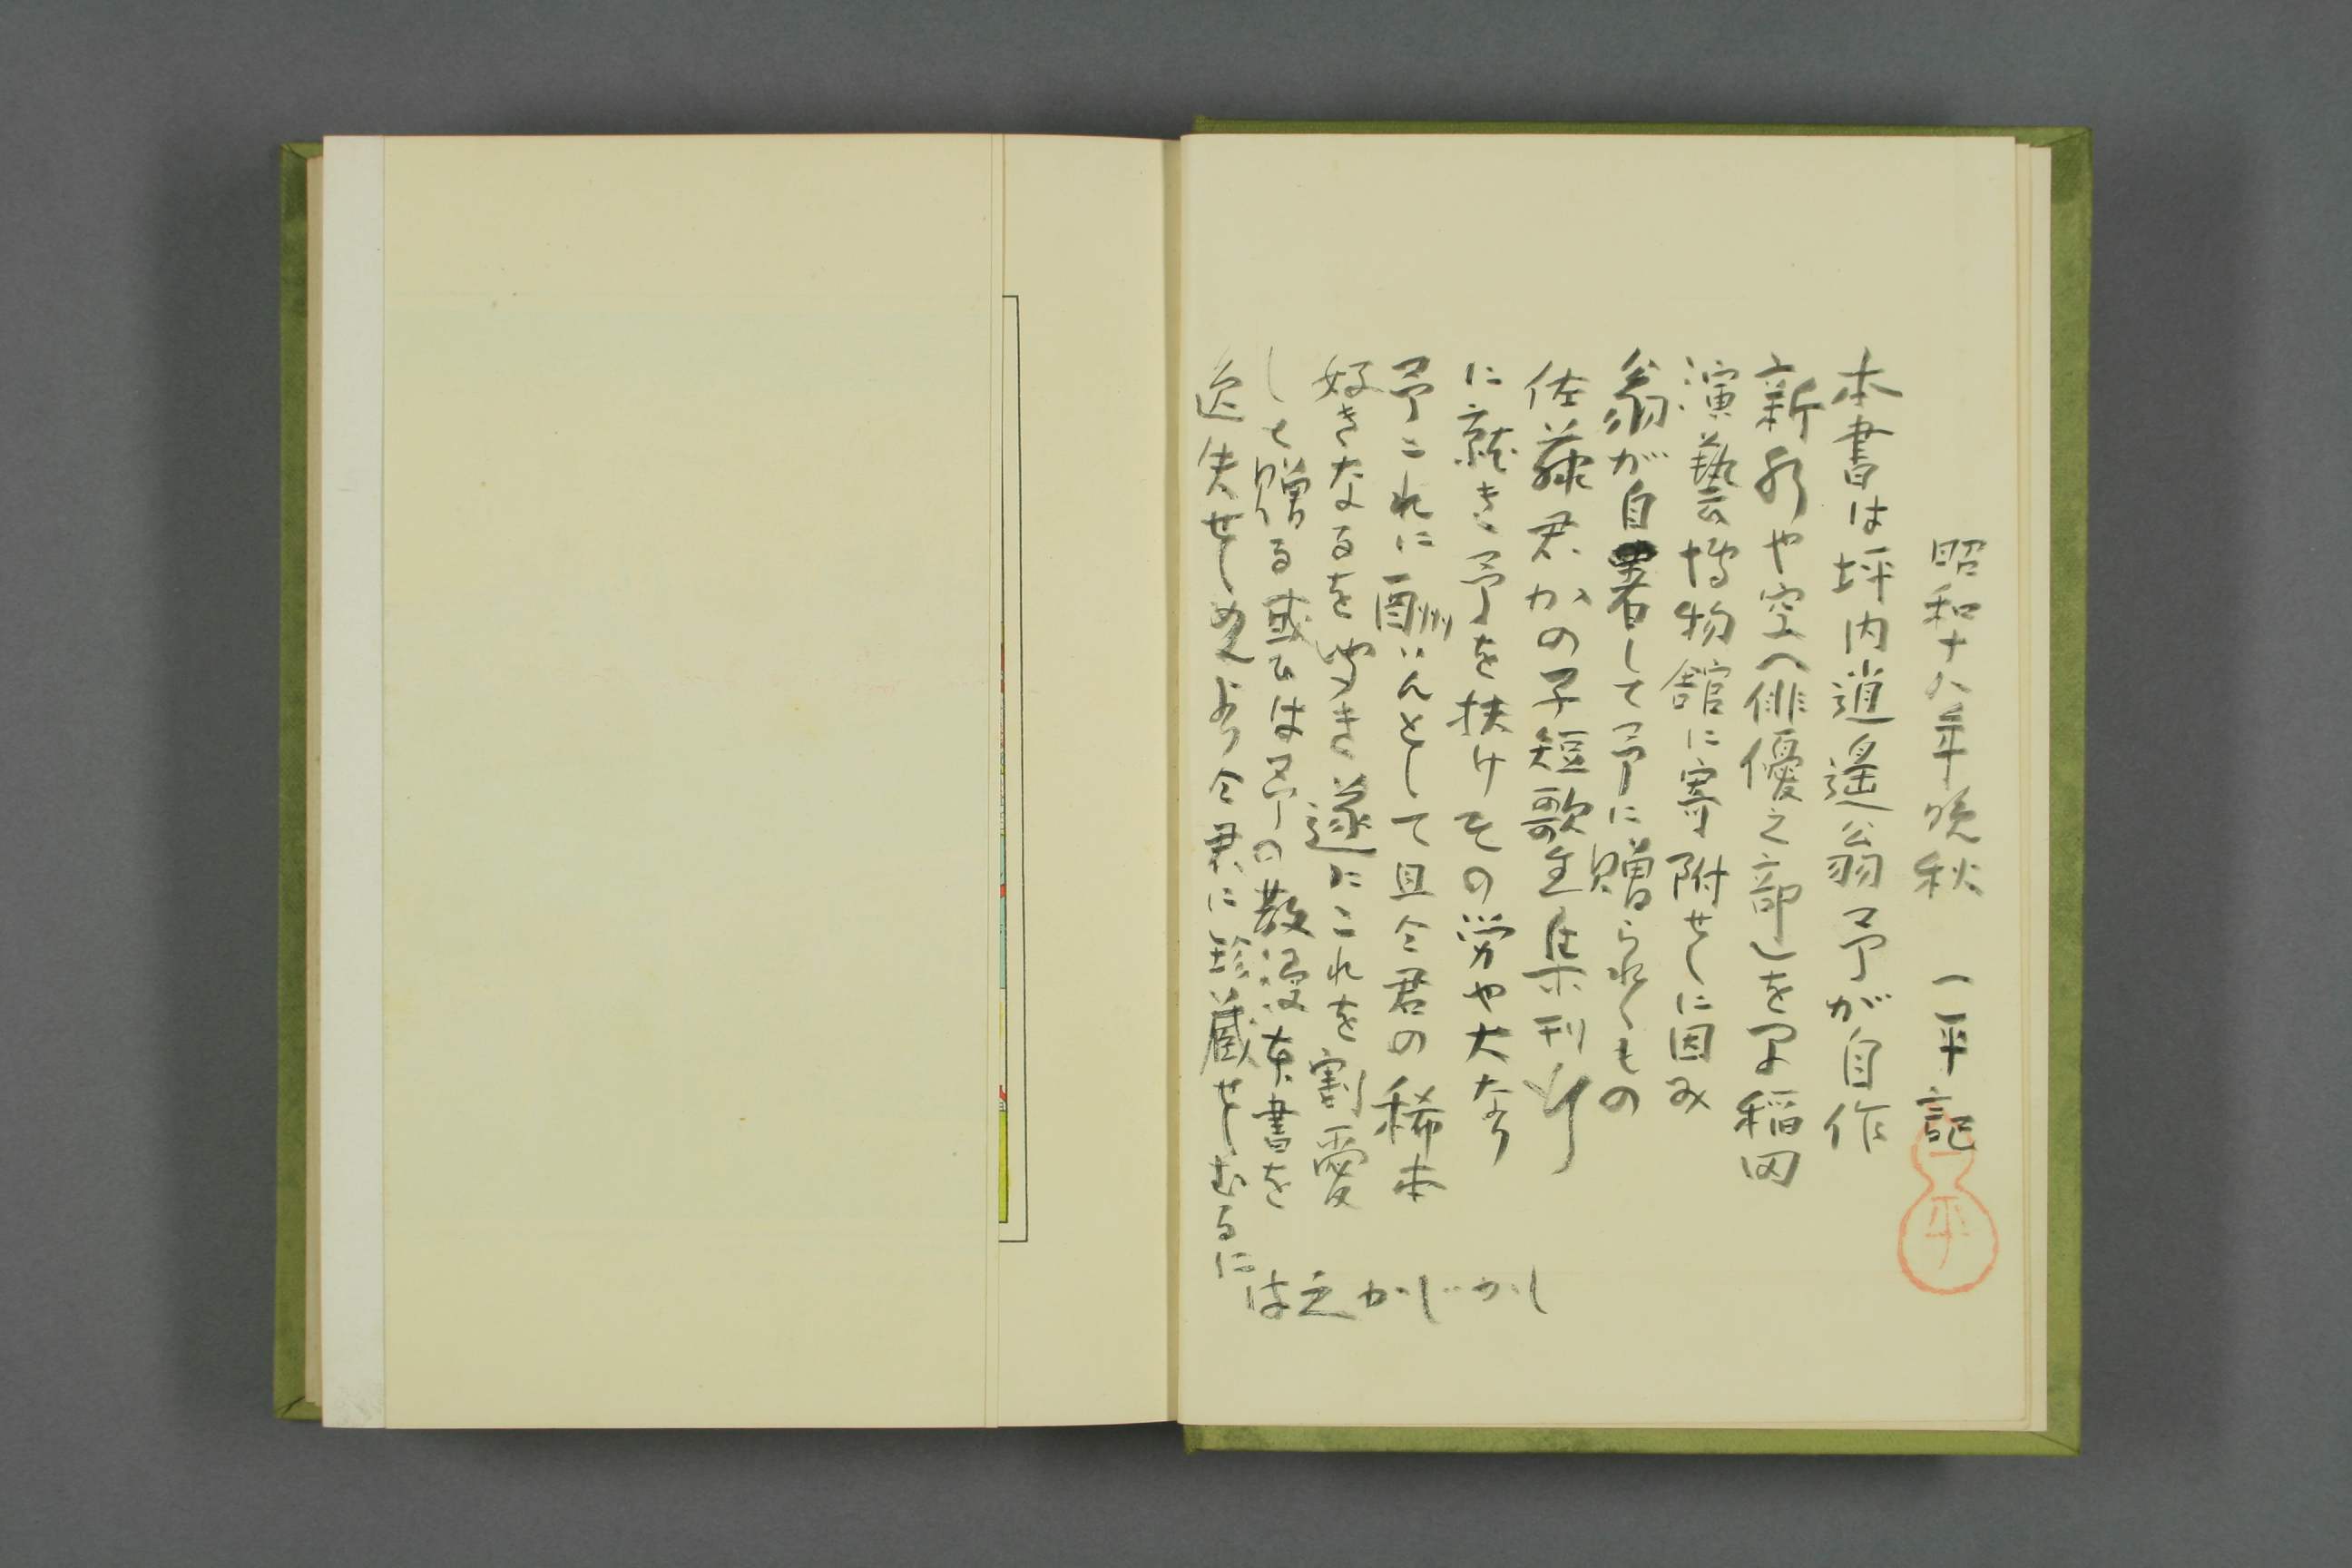 昭和十八年晩秋　一平記
一平
本書は坪内逍遙翁予が自作
新水や空「俳優之部」を早稲田
演藝博物館に寄附せしに因み
翁が自署して予に贈られしもの
佐藤君かの子短歌全集刊行
に就き予を扶けその労や大なり
予これに酬いんとして且仝君の稀本
好きなるを聞き遂にこれを割愛
して贈る或ひは予の散漫本書を
逸失せしめんより仝君に珍蔵せしむるに
は之かじかし